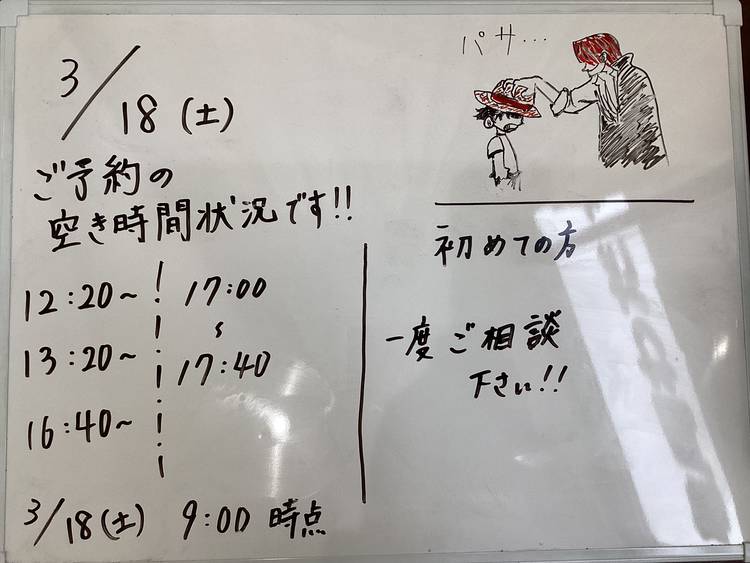 3/18(土)
ご予約の
空き時間状況です!!
12:20~
13:20~
16:40~
17:00
~
17:40
3/18(土) 9:00 時点
パサ…
初めての方
一度ご相談
下さい!!